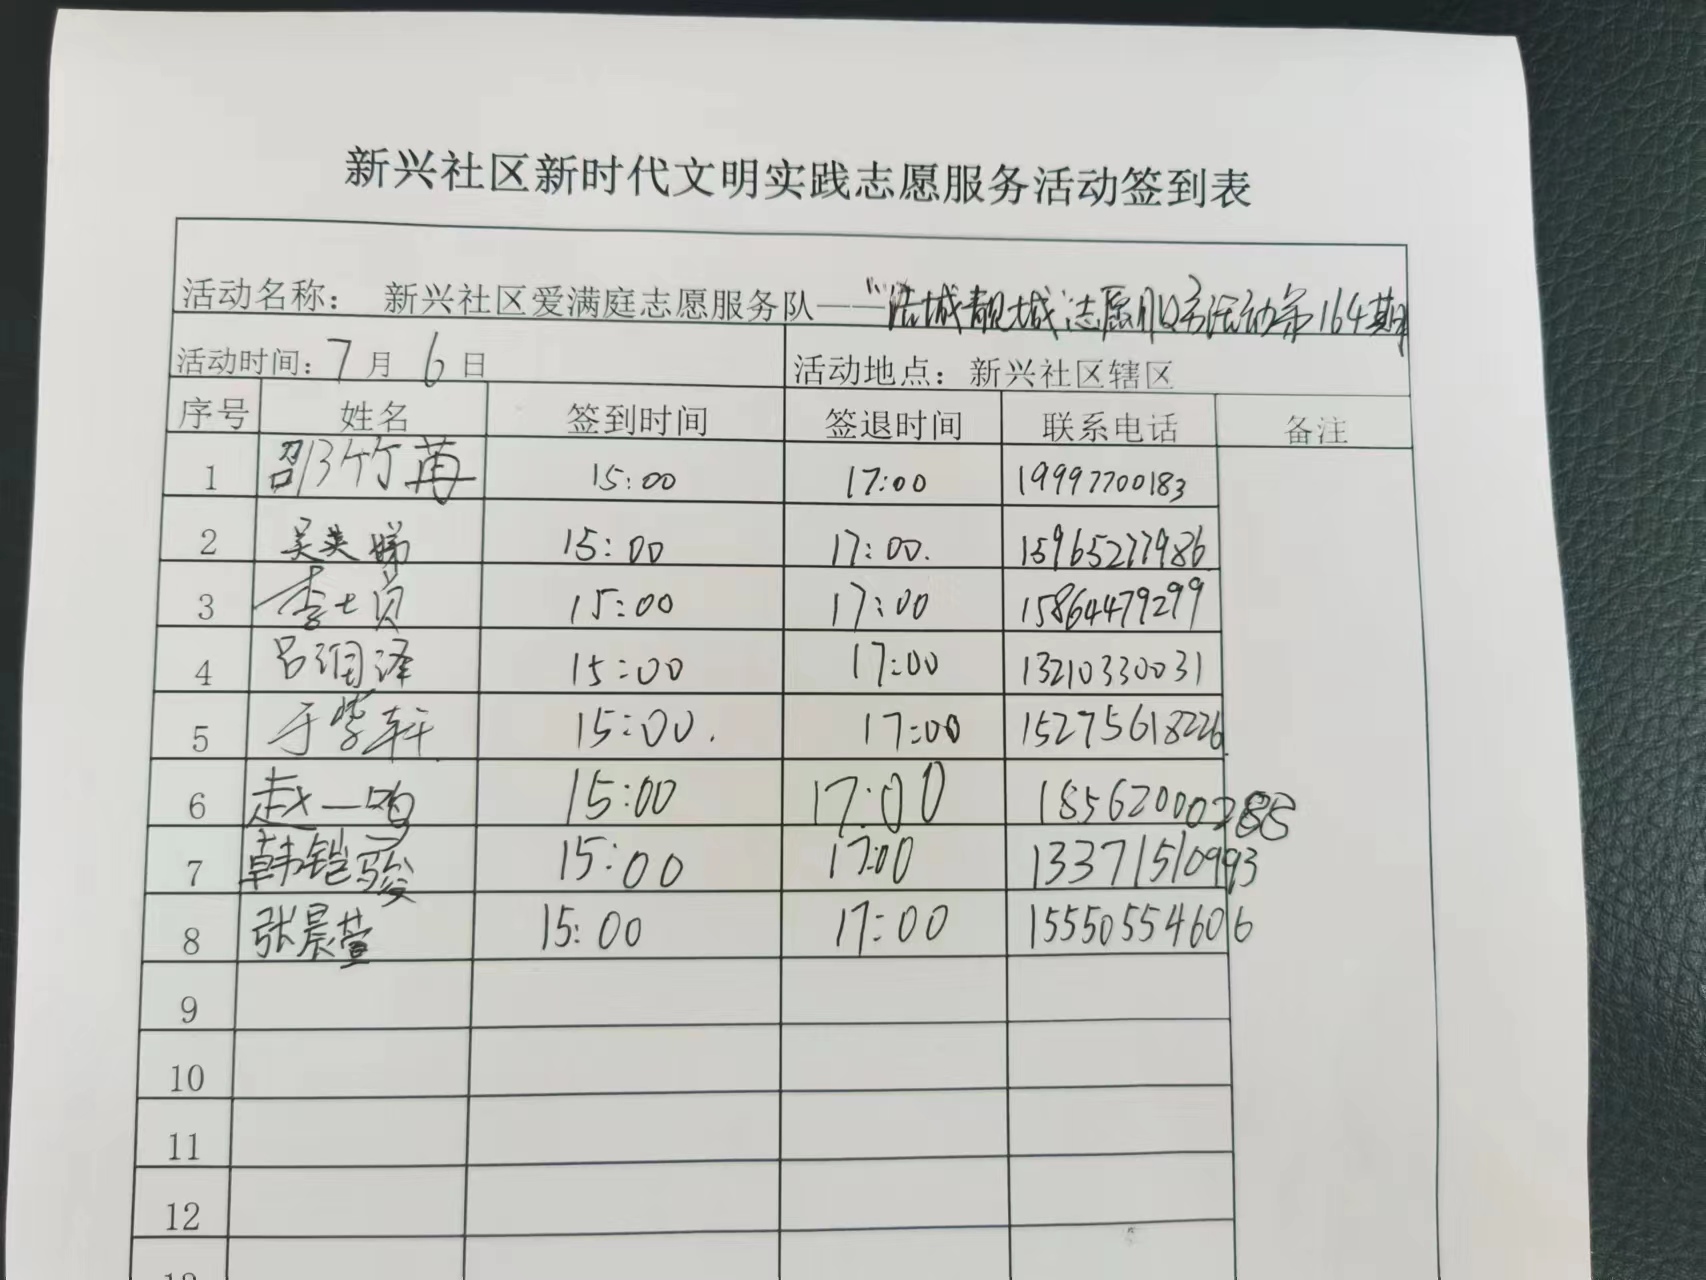 新兴社区新时代文明实践志愿服务活动签到表
活动名称： 新兴社区爱满庭志愿服务队——“洁城靓城”志愿服务活动第164期
活动时间：7月6日 活动地点：新兴社区辖区
序号 姓名 签到时间 签退时间 联系电话 备注
1 邵竹苒 15:00 17:00 19997700183
2 吴美娣 15:00 17:00. 15965277986
3 李士贞 15:00 17:00 15864479299
4 吕润泽 15:00 17:00 13210330031
5 于紫轩 15:00. 17:00 15275618226
6 赵一鸣 15:00 17:00 18562000288
7 韩铠骏 15:00 17:00 13371510993
8 张晨萱 15:00 17:00 15550554606
9
10
11
12